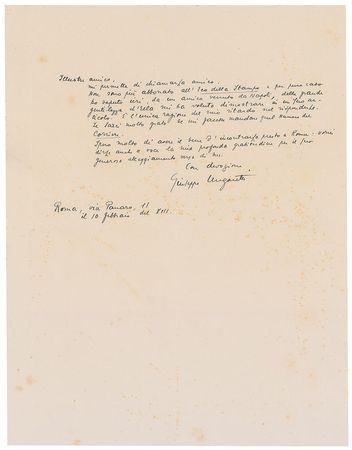 Illustre amico,
mi permette di chiamarla amico.
Non sono più abbonato all'Eco della Stampa e per puro caso
ho saputo ieri, da un amico venuto da Napoli, della grande
gentilezza ch'Ella mi ha voluto dimostrare in un suo ar-
ticolo. È l'unica ragione del mio ritardo nel risponderle.
Le sarei molto grato se mi facesse mandare quel numero del
Corriere.
Spero molto di avere il bene d'incontrarla presto a Roma: vorrei
dirle anche a voce la mia profonda gratitudine per il suo
generoso atteggiamento verso di me.
Con devozione
Giuseppe Ungaretti
Roma, via Panaro, 11
il 10 febbraio del XIII.